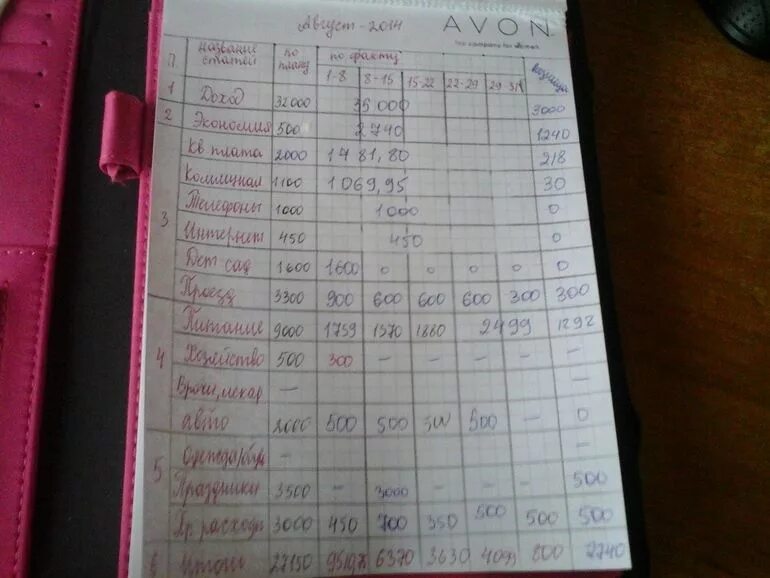 Август - 2014 AVON
the company for women
П. название статей по плану по факту разница
1-8 8-15 15-22 22-29 29-31
1 Доход 32000 35000 3000
2 Экономия 500 2740 1240
3 Кв плата 2000 1781,80 218
Коммунал 1100 1069,95 30
Телефоны 1000 1000 0
Интернет 450 450 0
Дет-сад 1600 1600 0 0 0 0 0
Проезд 3300 900 600 600 600 300 300
4 Питание 9000 1759 1570 1880 2499 1292
Хозяйство 500 300 - - - - -
Врачи, лекар - -
авто 2000 500 500 500 500 - 0
5 Одежда/обувь - -
Праздники 3500 - 3000 - - - 500
Др. расходы 3000 450 700 350 500 500 500
6 Итоги 27150 6370 3630 4099 800 2740